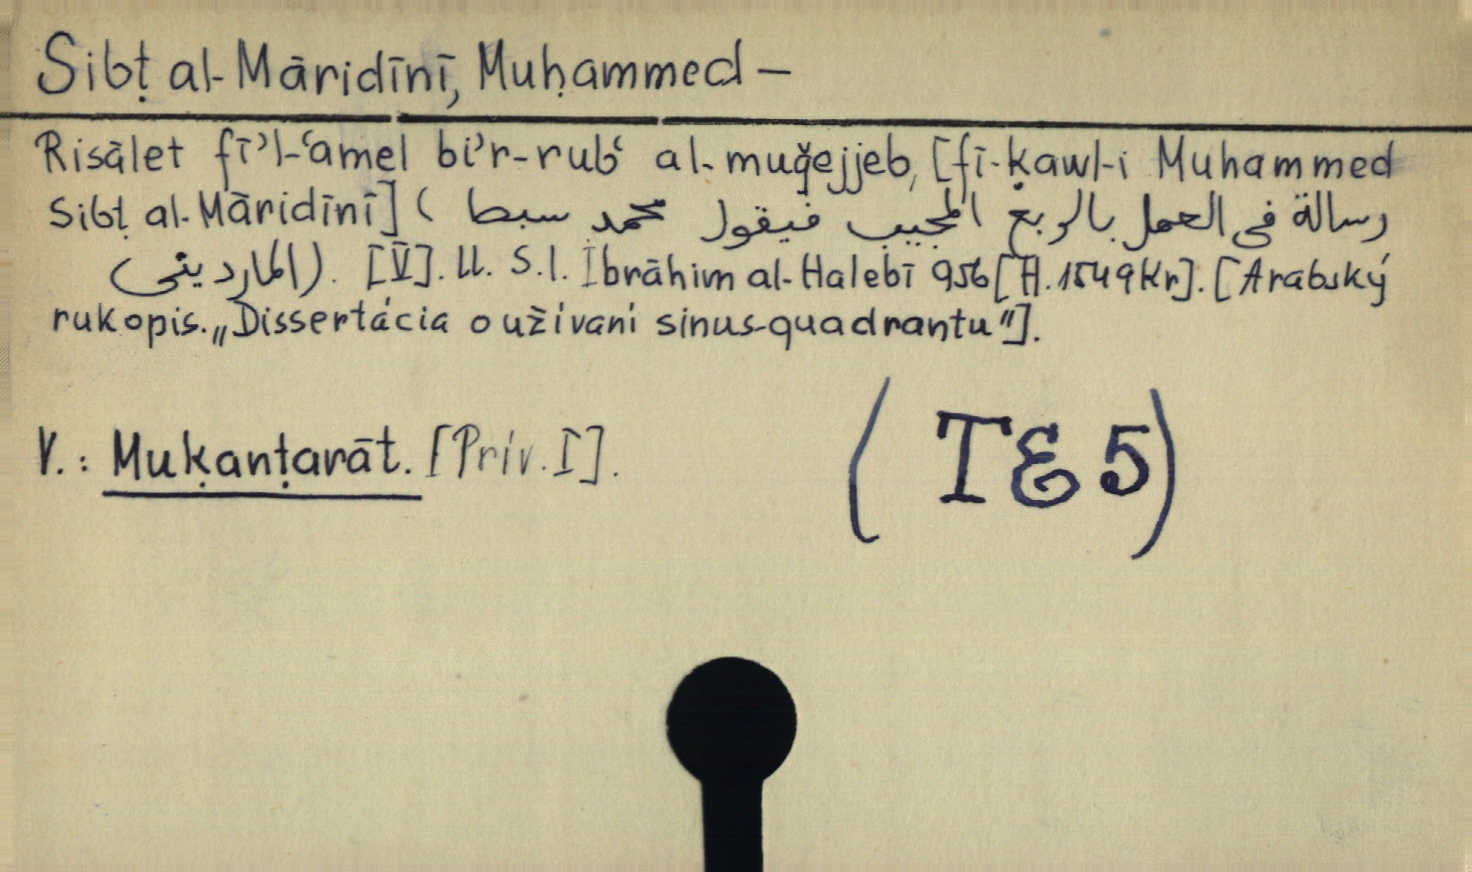 Sibṭ al-Māridīnī, Muḥammed –
Risālet fī’l-‘amel bi’r-rub‘ al-muǧejjeb, [fī-ḳawl-i Muhammed
Sibṭ al-Māridīnī] ( رسالة فى العمل بالربع المجيب فيقول محمد سبط
المارديني). [V]. ll. S.l. Ibrāhim al-Halebī 956 [H. 1549 Kr]. [Arabský
rukopis. „Dissertácia o užívaní sinus-quadrantu"].
V.: Muḳanṭarāt. [Priv. I].
(TE 5)